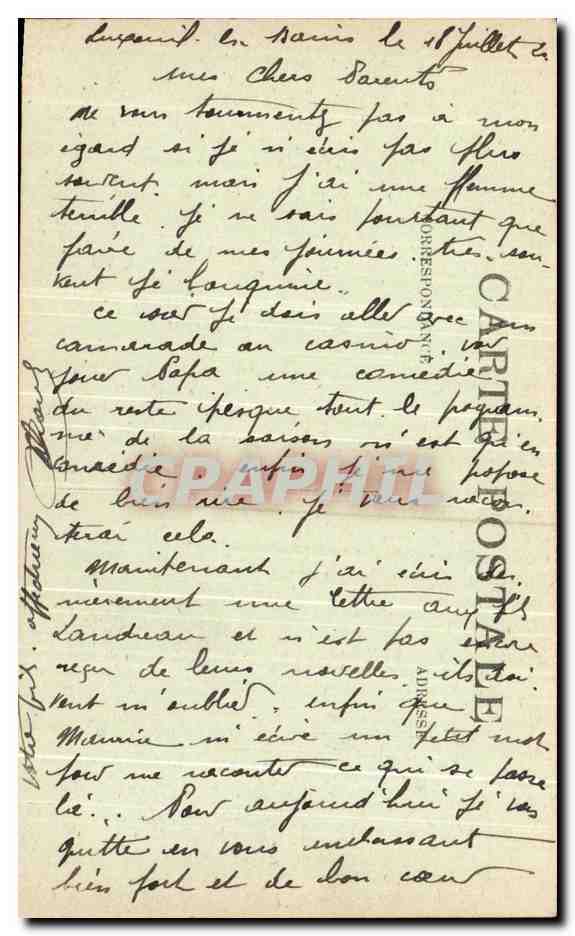 Luxeuil-les-Bains le 18 Juillet
Mes Chers Parents
Ne vous tourmentez pas à mon
égard si je n'écris pas plus
souvent. mais j'ai une flemme
terrible. je ne sais pourtant que
faire de mes journées. très-sou-
vent je bouquine..
Ce soir je dois aller avec un
camarade au casino. voir
jouer Papa une comédie
du reste presque tout le program-
me de la saison n'est qu'en
comédie. enfin je me propose
de bien rire. je vous racon-
terai cela.
Maintenant j'ai écris der-
nièrement une lettre aux fils
Landreau et n'est pas encore
reçu de leurs novelles. ils doi-
vent m'oublier. enfin que
Maurice m'écrive un petit mot
pour me raconter ce qui se passe
là... Pour aujourd'hui je vous
quitte en vous embrassant
bien fort et de bon cœur
votre fils affectueux
CARTE POSTALE
CORRESPONDANCE
ADRESSE
CPAPHIL